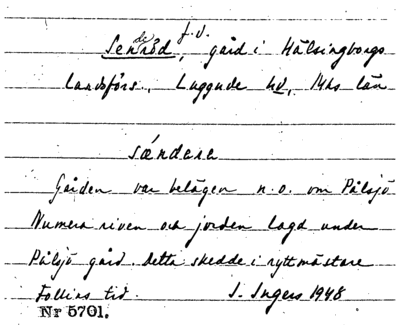 Senderöd, f.d. gård i Hälsingborgs
landsförs., Luggude hd, Mhs län
sændara
Gården var belägen n.o. om Pålsjö
Numera riven och jorden lagd under
Pålsjö gård. Detta skedde i ryttmästare
Follins tid. I. Ingers 1948
Nr 5701.